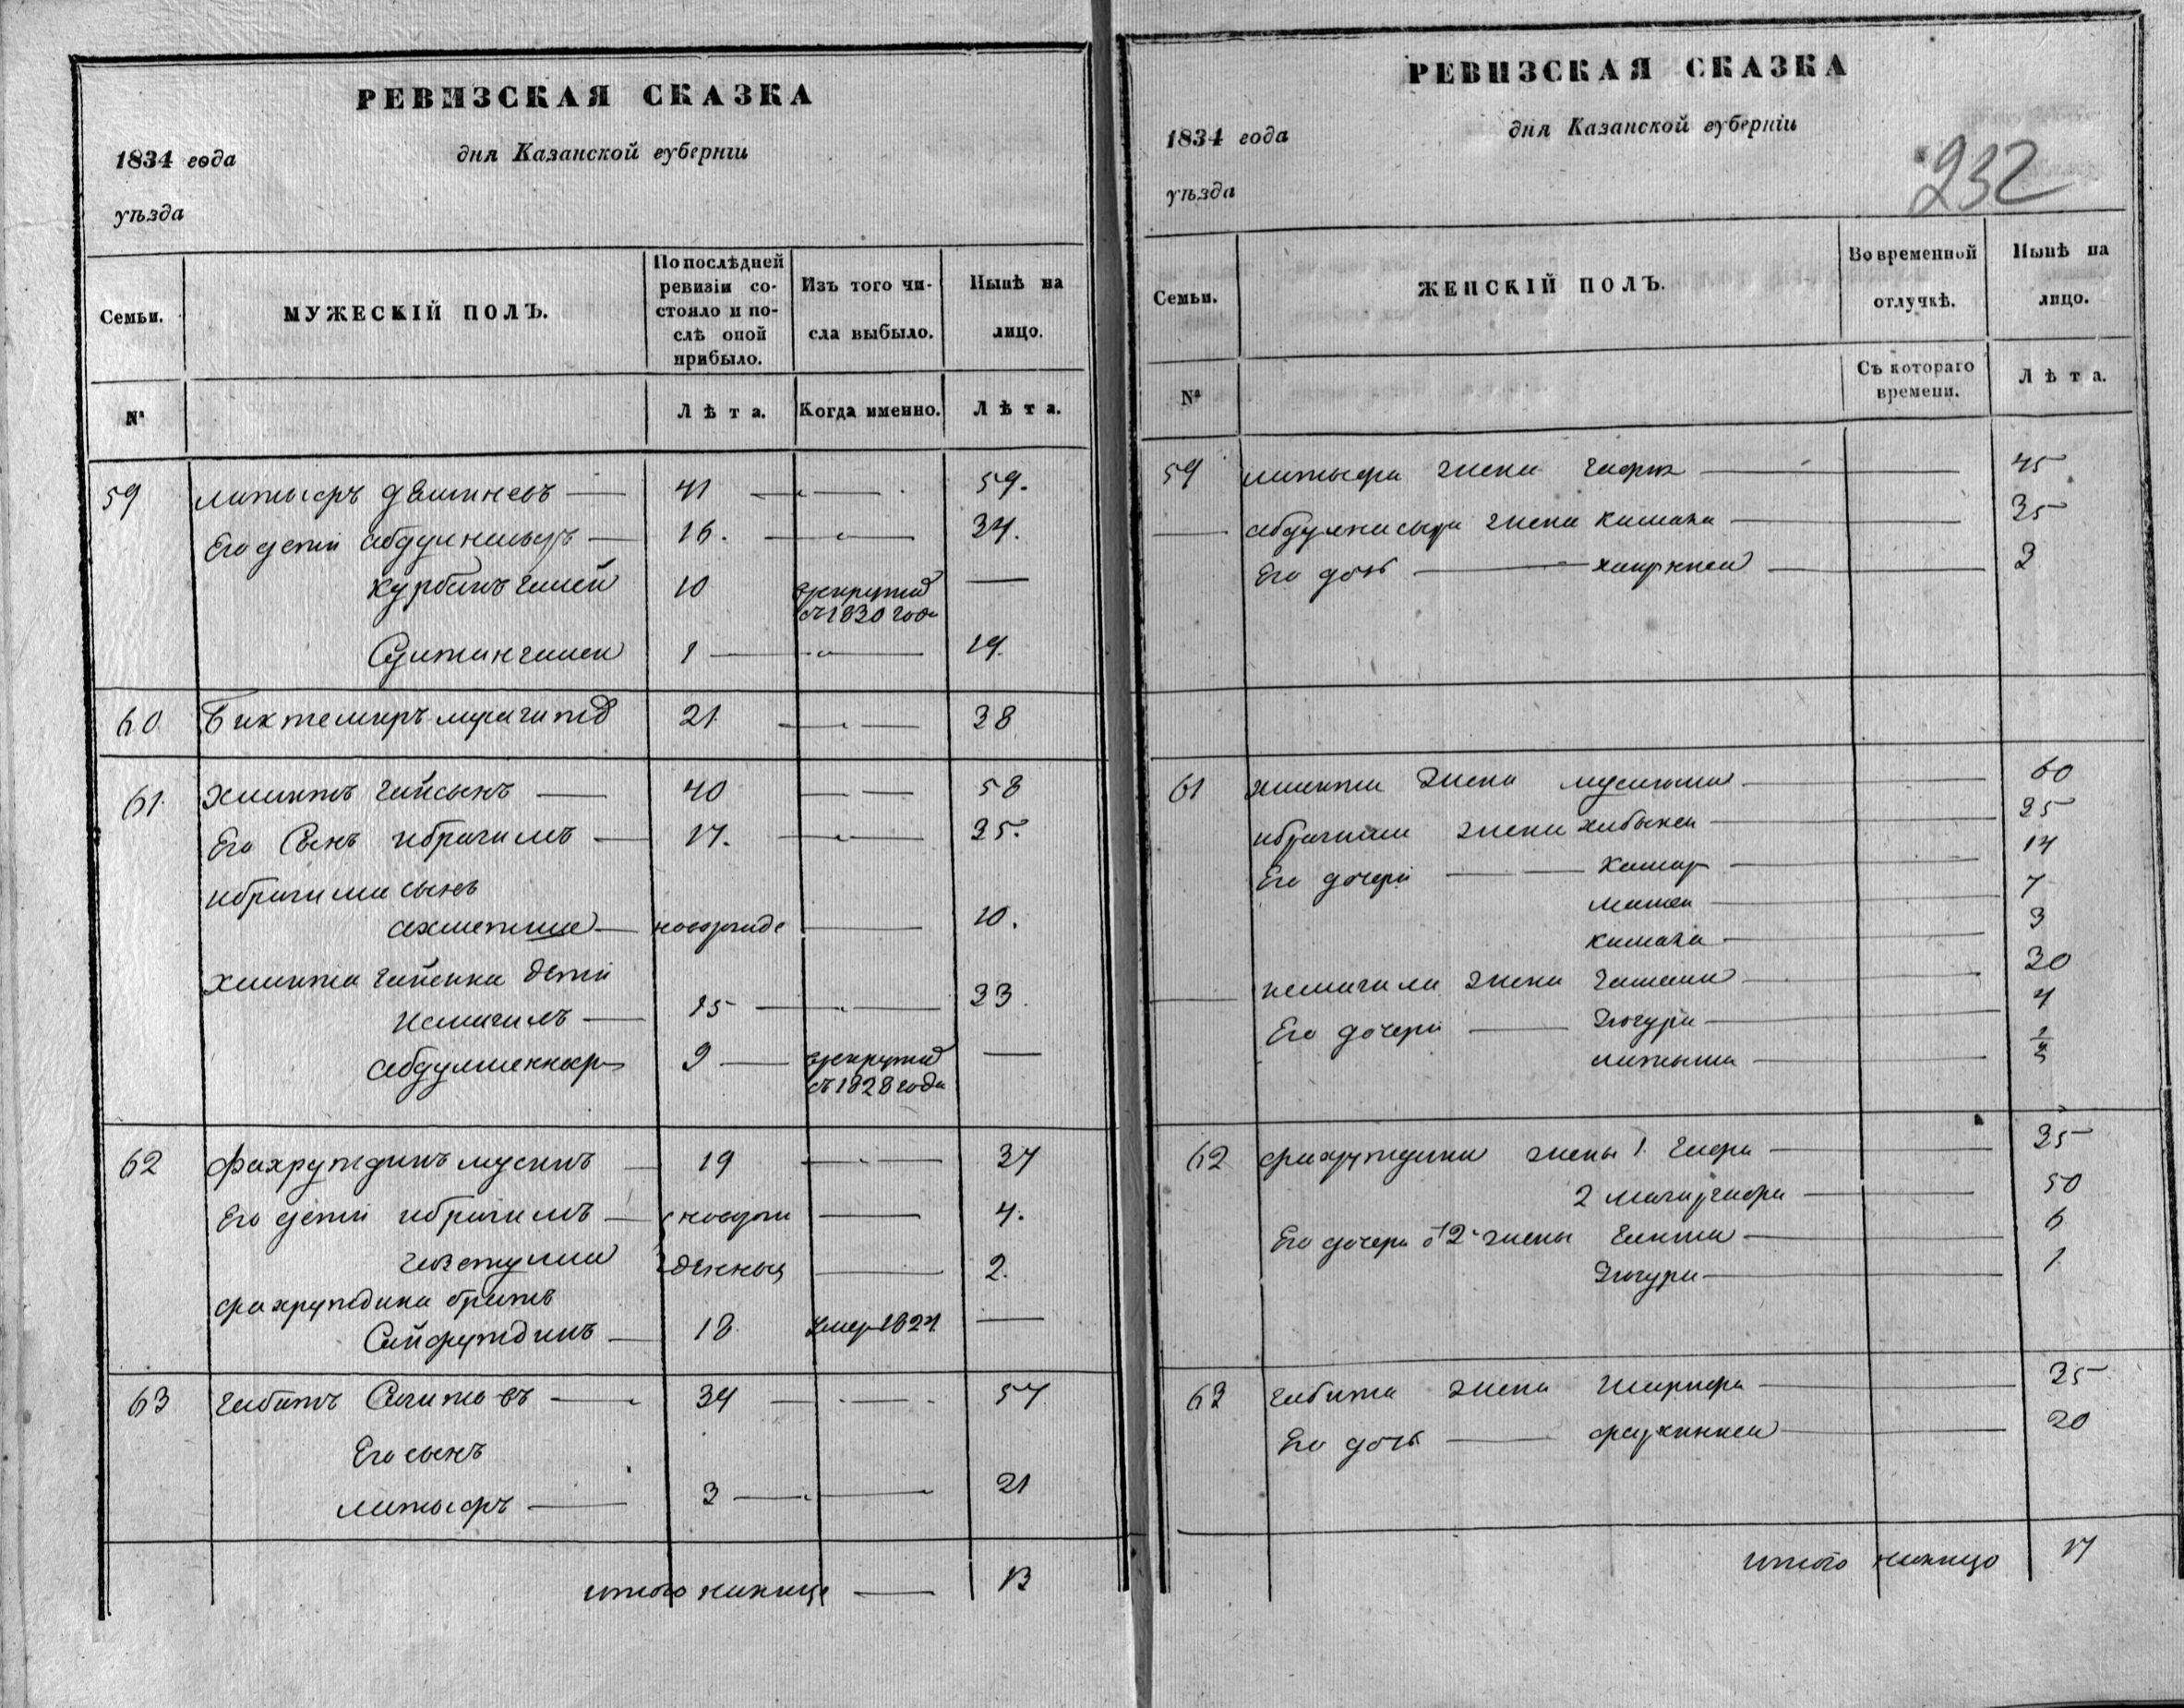 РЕВИЗСКАЯ СКАЗКА
1834 года
дня Казанской губерніи
уѣзда
Семьи.
МУЖЕСКІЙ ПОЛЪ.
По послѣдней ревизіи со-
стояло и по-
слѣ оной
прибыло.
Изъ того чи-
сла выбыло.
Нынѣ на
лицо.
№
Лѣта.
Когда именно.
Лѣта.
59 латыфъ 41 59.
Его дети абдулнасыръ 16. 34.
курбангалей 10 врекруты
съ 1830 года
Султангалей 1 19.
60 Биктемиръ 21 38
61 хамитъ гайсынъ 40 58
Его Сынъ ибрагимъ 17. 35.
ибрагима сынъ
ахметша новорожде 10.
хамита гайсина дети
Исмагилъ 15 33.
абдулменнафъ 9 врекруты
съ 1828 года
62 фахрутдинъ мусинъ 19 37
Его дети ибрагимъ новорож 4.
денныя 2.
фахрутдина братъ
Сайфутдинъ 18 умер 1827
63 габитъ Сагитовъ 39 57
Его сынъ
латыфъ 3 21
итого налицо 13
РЕВИЗСКАЯ СКАЗКА
1834 года
дня Казанской губерніи
уѣзда
232
Семьи.
ЖЕНСКІЙ ПОЛЪ.
Во временной
отлучкѣ.
Нынѣ на
лицо.
№
Съ котораго
времени.
Лѣта.
59 латыфа жена 45
абдулнасыра жена камала 35
Его дочь 3
61 хамита жена 60
ибрагима жена хабыкеи 35
Его дочери Камар 14
7
камала 3
исмагила жена 30
Его дочери Зюгура 4
латыша
62 фахрутдина жены 1. 35
2 50
Его дочери от 2 жены 6
Зюгура 1
63 габита жена 35
Его дочь 20
итого налицо 17